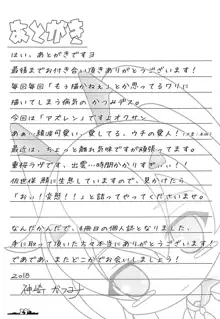 あとがき
はい、あとがきですヨ
最後までお付き合い頂きありがとうございます!
毎回毎回「もう描かねぇ」とか思ってるワリに
描いてしまう病気の かつみデス。
今回は「アズレン」ですよオクサン
最近は、ちょっと触れ気味ですが頑張ってます。
重桜ラヴです、出雲…時間かかりすぎぃ!!
佐世保 鯖に生息していますので、見かけたら
「おい!妄想!」と詰ってやってくださいませ。
なんだかんだで、4冊目の個人誌となりました。
手に取って頂いた方々本当にありがとうございます!
であでわ、またどこかでお会いしましょう!
2018
神崎 かつみ